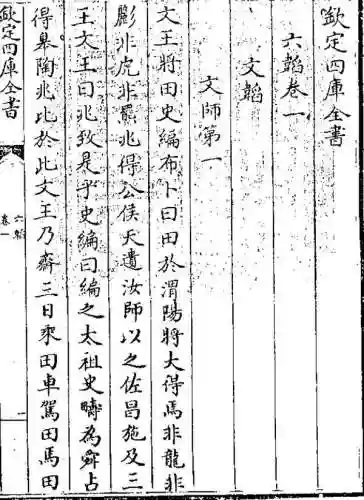 欽定四庫全書
六韜卷一
文韜
文師第一
文王將田史編布卜曰田於渭陽將大得焉非龍非
彲非虎非羆兆得公侯天遺汝師以之佐昌施及三
王文王曰兆致是乎史編曰編之太祖史疇為舜占
得皋陶兆比於此文王乃齋三日乘田車駕田馬田
欽定四庫全書
六韜
卷一